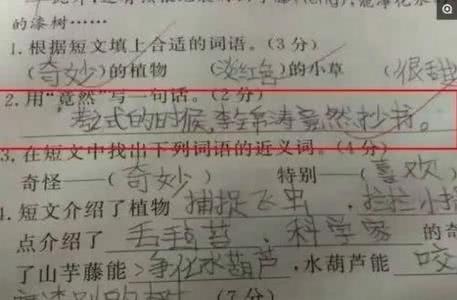 的漆树……
1.根据短文填上合适的词语。(3分)
(奇妙)的植物 (淡红色)的小草 (很甜
2.用“竟然”写一句话。(2分)
考式的时候,李全常涛竟然抄书。
3.在短文中找出下列词语的近义词。(4分)
奇怪——(奇妙) 特别——(喜欢)
短文介绍了植物 捕捉飞虫、拦拦小
点介绍了 丢 苔、科学家 的奇
了山芋藤能 争化水葫芦,水葫芦能 咬
(7分)